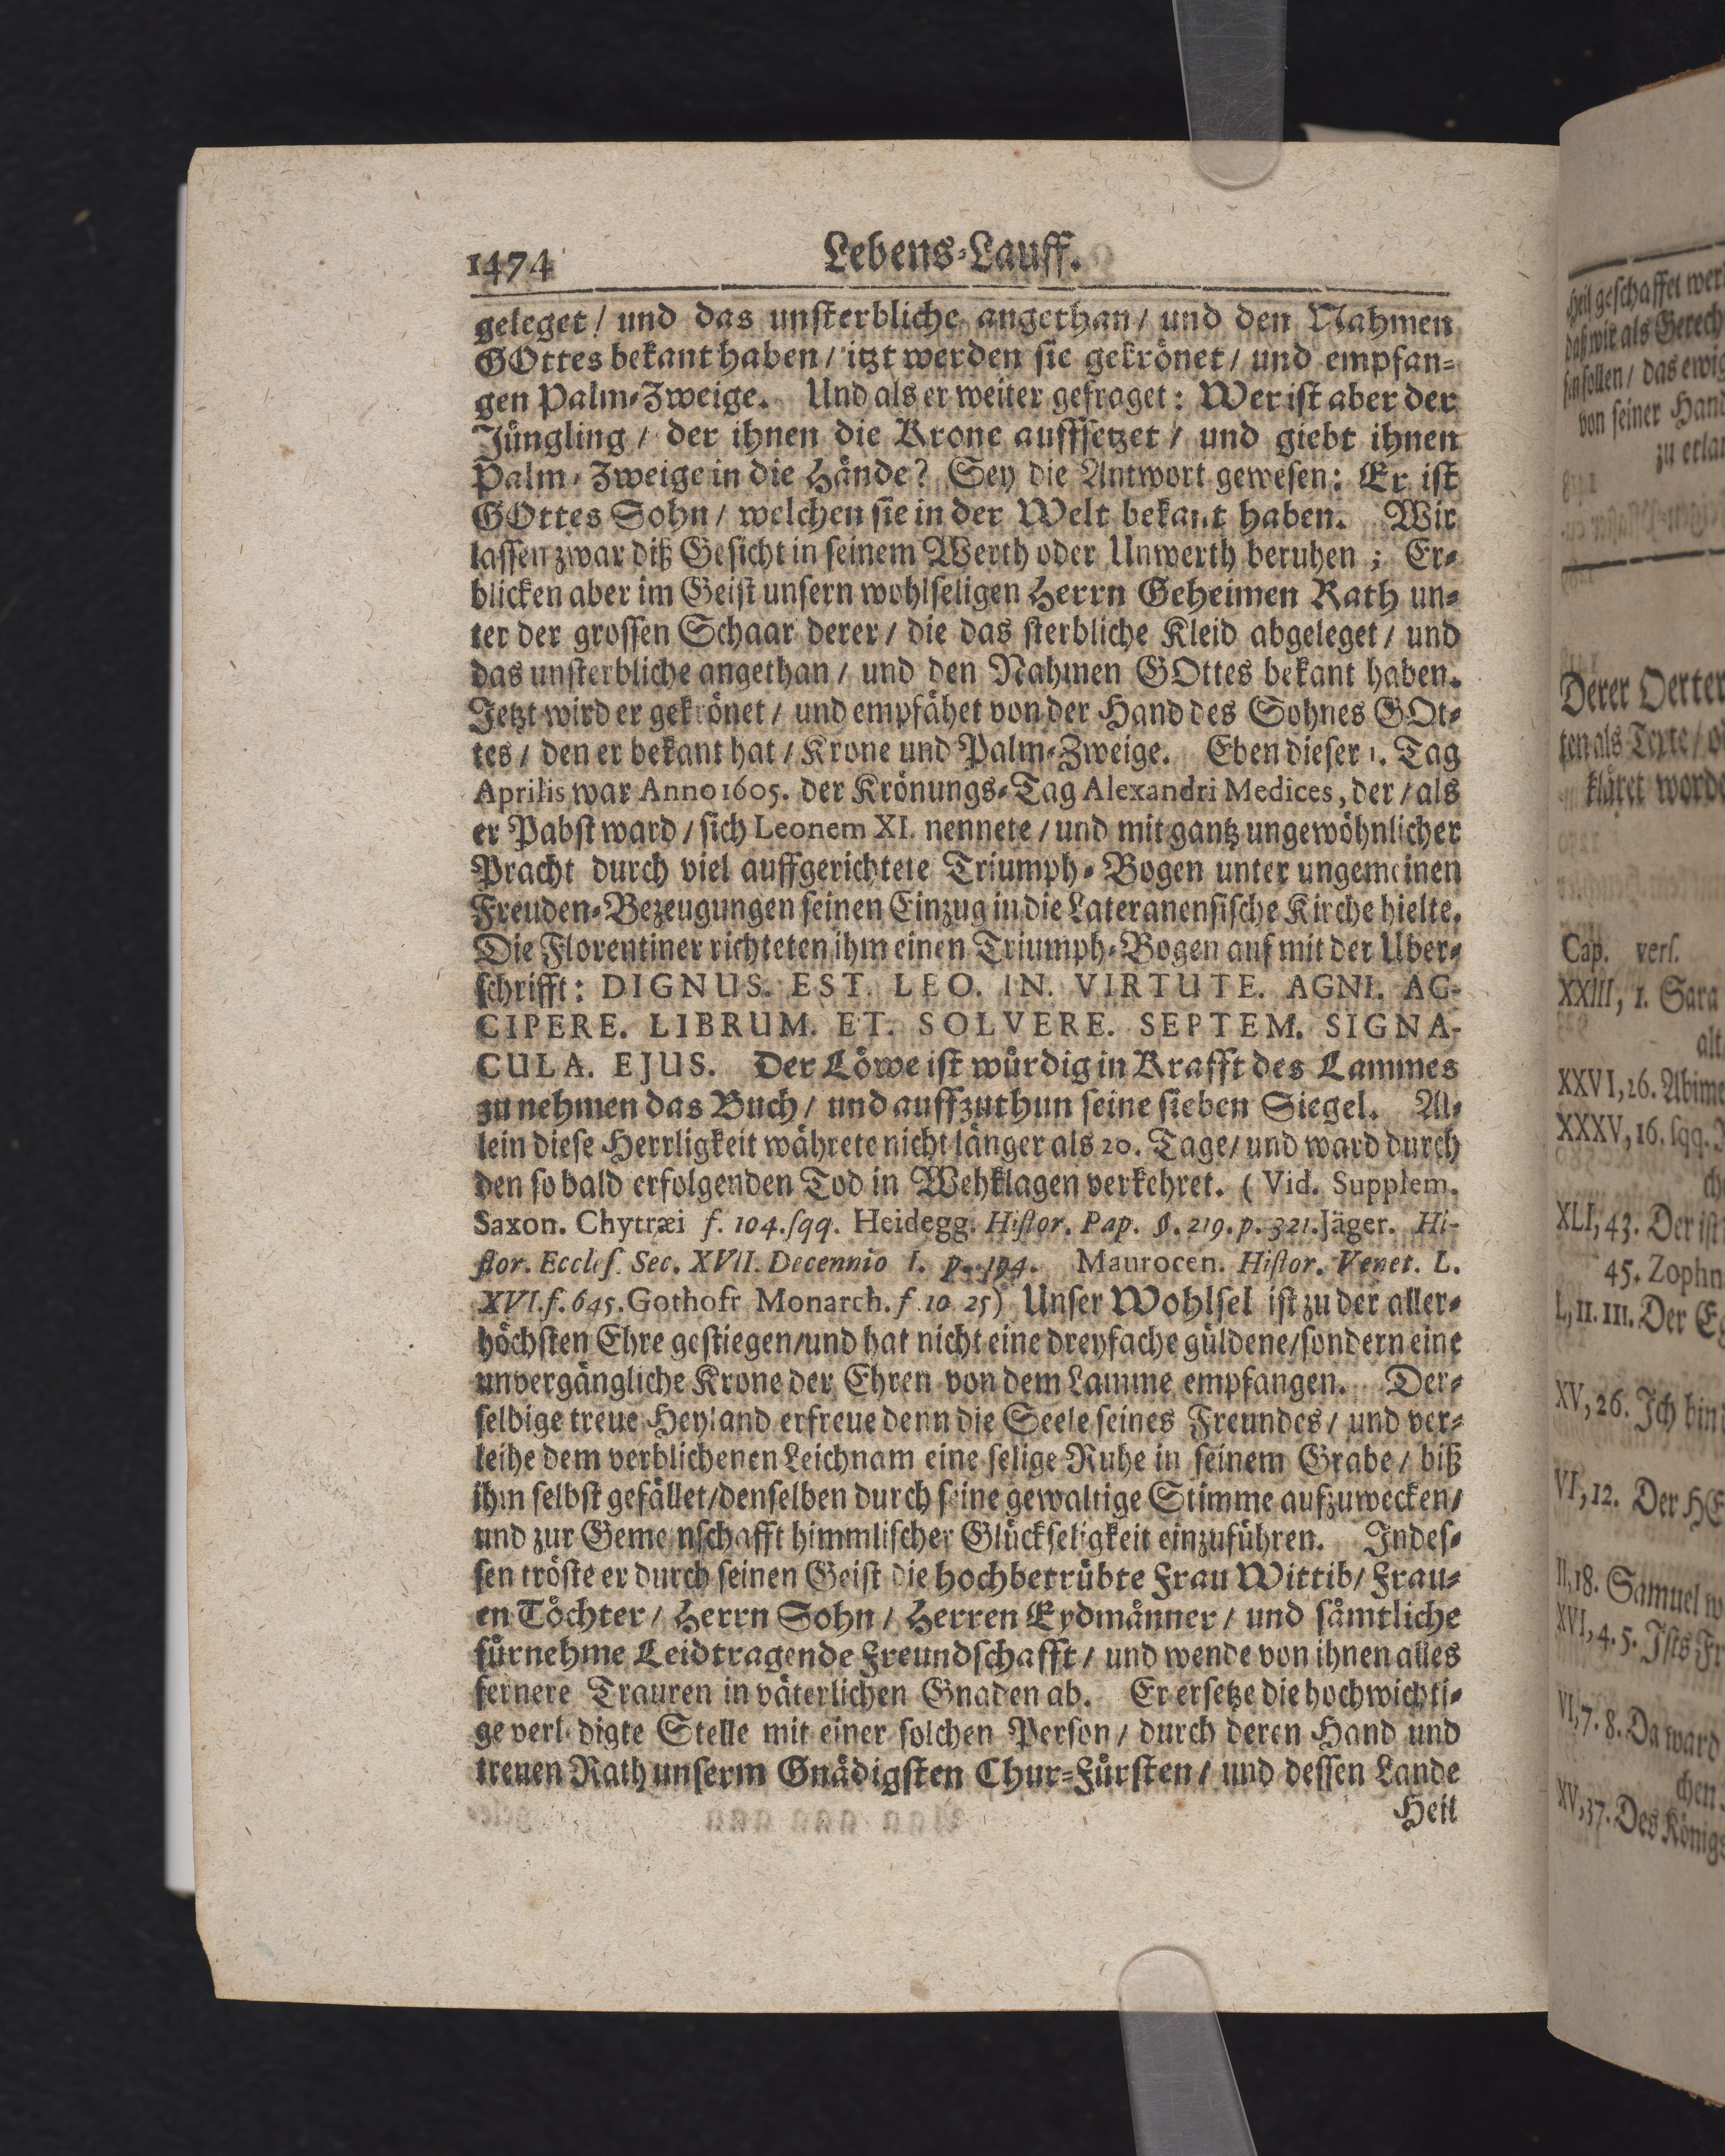 1474 Lebens-Lauff.
geleget / und das unsterbliche angethan / und den Nahmen
GOttes bekant haben / itzt werden sie gekrönet / und empfan-
gen Palm-Zweige. Und als er weiter gefraget: Wer ist aber der
Jüngling / der ihnen die Krone auffsetzet / und giebt ihnen
Palm-Zweige in die Hände? Sey die Antwort gewesen: Er ist
GOttes Sohn / welchen sie in der Welt bekant haben. Wir
lassen zwar diß Gesicht in seinem Werth oder Unwerth beruhen; Er-
blicken aber im Geist unsern wohlseligen Herrn Geheimen Rath un-
ter der grossen Schaar derer / die das sterbliche Kleid abgeleget / und
das unsterbliche angethan / und den Nahmen GOttes bekant haben.
Jetzt wird er gekrönet / und empfähet von der Hand des Sohnes GOt-
tes / den er bekant hat / Krone und Palm-Zweige. Eben dieser 1. Tag
Aprilis war Anno 1605. der Krönungs-Tag Alexandri Medices, der / als
er Pabst ward / sich Leonem XI. nennete / und mit gantz ungewöhnlicher
Pracht durch viel auffgerichtete Triumph-Bogen unter ungemeinen
Freuden-Bezeugungen seinen Einzug in die Lateranensische Kirche hielte.
Die Florentiner richteten ihm einen Triumph-Bogen auf mit der Uber-
schrifft: DIGNUS. EST. LEO. IN. VIRTUTE. AGNI. AC-
CIPERE. LIBRUM. ET. SOLVERE. SEPTEM. SIGNA-
CULA. EJUS. Der Löwe ist würdig in Krafft des Lammes
zu nehmen das Buch / und auffzuthun seine sieben Siegel. Al-
lein diese Herrligkeit währete nicht länger als 20. Tage / und ward durch
den so bald erfolgenden Tod in Wehklagen verkehret. (Vid. Supplem.
Saxon. Chytræi f. 104. sqq. Heidegg. Histor. Pap. §. 219. p. 321. Jäger. Hi-
stor. Eccles. Sec. XVII. Decennio I. p. 194. Maurocen. Histor. Venet. L.
XVI. f. 645. Gothofr Monarch. f. 10 25) Unser Wohlsel ist zu der aller-
höchsten Ehre gestiegen / und hat nicht eine dreyfache güldene / sondern eine
unvergängliche Krone der Ehren von dem Lamme empfangen. Der-
selbige treue Heyland erfreue denn die Seele seines Freundes / und ver-
leihe dem verblichenen Leichnam eine selige Ruhe in seinem Grabe / biß
ihm selbst gefället / denselben durch seine gewaltige Stimme aufzuwecken /
und zur Gemeinschafft himmlischer Glückseligkeit einzuführen. Indes-
sen tröste er durch seinen Geist die hochbetrübte Frau Wittib / Frau-
en Töchter / Herrn Sohn / Herren Eydmänner / und sämtliche
fürnehme Leidtragende Freundschafft / und wende von ihnen alles
fernere Trauren in väterlichen Gnaden ab. Er ersetze die hochwichti-
ge verledigte Stelle mit einer solchen Person / durch deren Hand und
treuen Rath unserm Gnädigsten Chur-Fürsten / und dessen Lande
Heil
Heil geschaffet wer
daß wir als Gerech
sin sollen / das ewig
von seiner Hand
zu erlan
Derer Oerter
ten als Texte / o
kläret worde
Cap. vers.
XXIII, 1. Sara
alt
XXVI, 26. Abime
XXXV, 16. sqq. J
ch
XLI, 43. Der ist
45. Zophn
L, II. III. Der Eg
XV, 26. Ich bin
VI, 12. Der HE
II, 18. Samuel w
XVI, 4. 5. Ists Fr
VI, 7. 8. Da ward
chen.
XV, 37. Des Königs